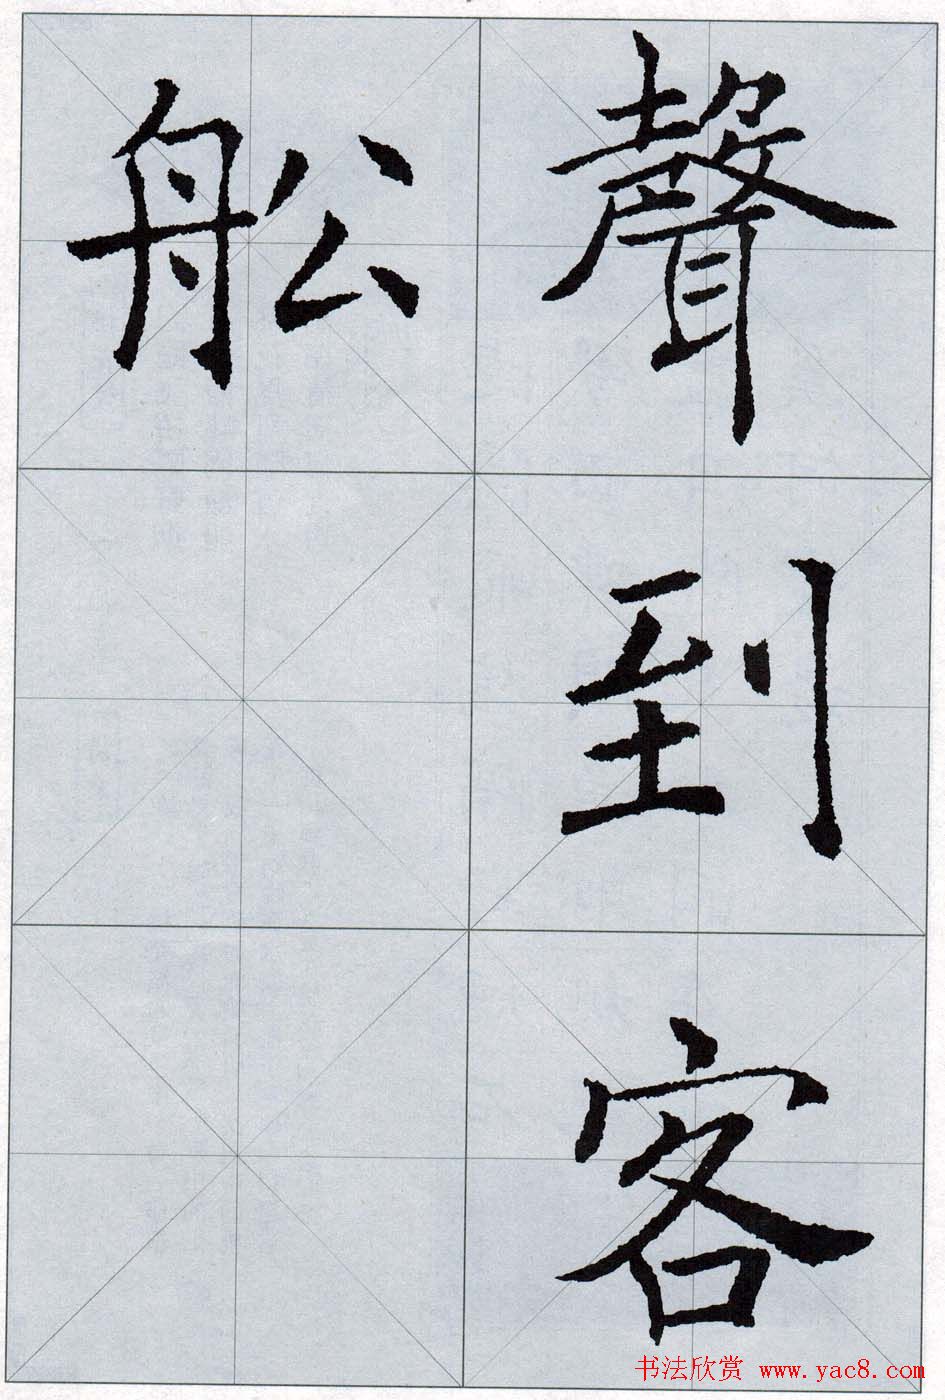 聲到客
舩
书法欣赏 www.yac8.com